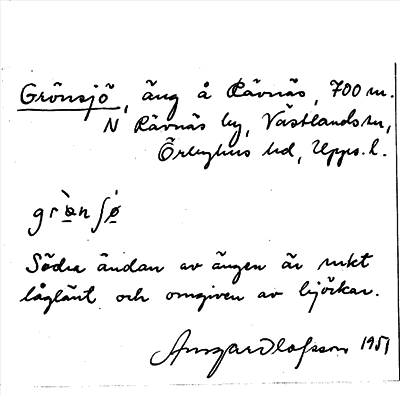 Grönsjö, äng å Rävnäs, 700 m.
N Rävnäs by, Västlands sn,
Örbyhus hd, Upps. l.
grὼn ʃǿ
Södra ändan av ängen är rikt
låglänt och omgiven av björkar.
Ansgar Olofsson 1951